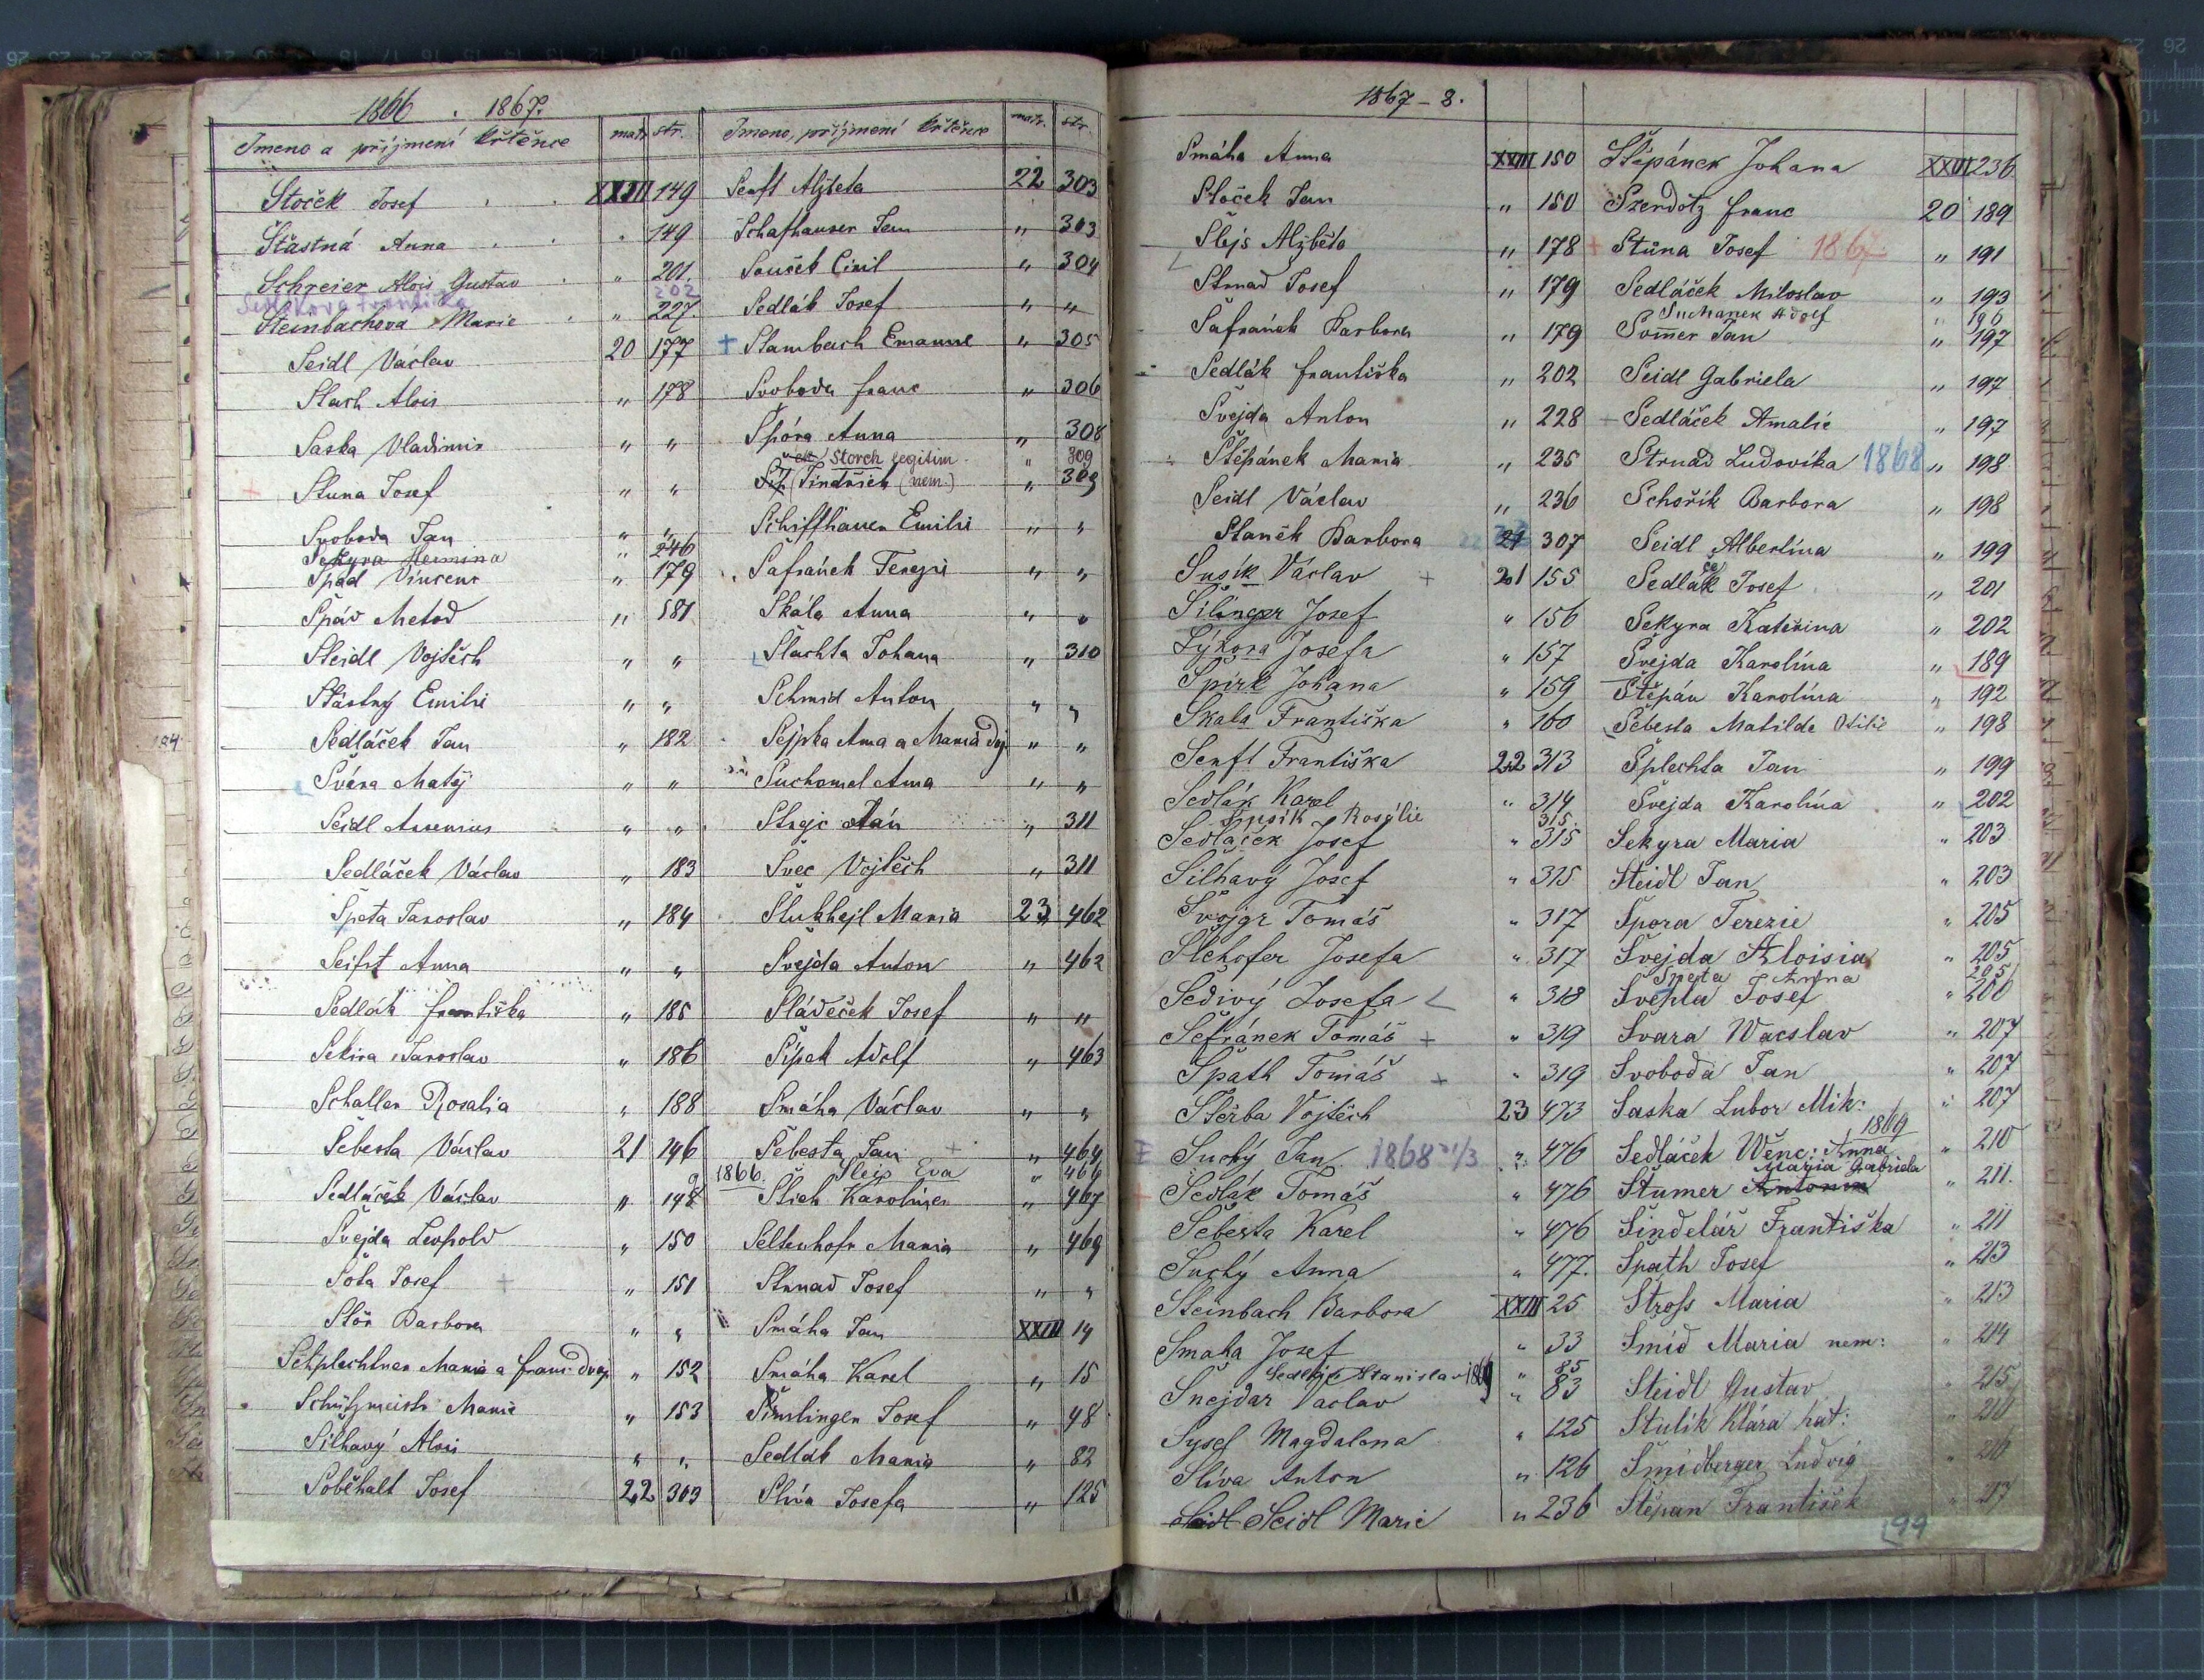 1866 . 1867.
Jmeno a příjmení křtěnce matr. str.
Stoček Josef XXIII 149
Šťastná Anna " 149
Schreier Alois Gustav " 201.
Františka 202
Steinbachová Marie " 227
Seidl Václav 20 177
Stach Alois " 178
Saska Vladimir " "
Stuna Josef " "
Svoboda Jan " "
Sekyra Hermina " 246
Špád Vincenc " 179
Špád Metod " 181
Steidl Vojtěch " "
Šťástný Emilie " "
Sedláček Jan " 182
Švára Matěj " "
Seidl Arsenius " "
Sedláček Václav " 183
Špeta Jaroslav " 184
Seifrt Anna " "
Sedlák Františka " 185
Sekira Jaroslav " 186
Schaller Rosalia " 188
Šebesta Václav 21 146
Sedláček Václav " 148
Švejda Leopold " 150
Šota Josef + " 151
Stör Barbora " "
Schplechtner Maria a Franc dvoj " 152
Schützmeistr Marie " 153
Šilhavý Alois " "
Soběhalt Josef 22 303
Jmeno, příjmení křtěnce matr. str.
Senft Alžběta 22 303
Schafhauser Jan " 303
Souček Ciril " 304
Sedlák Josef " "
+ Stambach Emanuel " 305
Svoboda Franc " 306
Špóra Anna " 308
Storch legitim. " 309
Jindřich (nem.) " 309
Schiffhauer Emilie " "
Šafránek Terezie " "
Skála Anna " "
Šlachta Johana " 310
Schmid Anton " "
Šejpka Anna a Maria dvoj " "
Suchomel Anna " "
Strejc Jan " 311
Švec Vojtěch " 311
Stukhejl Maria 23 462
Švejda Anton " 462
Sládeček Josef " "
Šípek Adolf " 463
Smáha Václav " "
Šebesta Jan + " 464
1866. Šlejs Eva " 466
Stich Karolina " 467
Seltenhofr Maria " 469
Strnad Josef " "
Smáha Jan XXIII 14
Smáha Karel " 15
Šimlinger Josef " 48
Sedlák Maria " 82
Slíva Josefa " 125
1867 - 8.
Smáha Anna XXIII 150
Stoček Jan " 150
Šlejs Alžběta " 178
Strnad Josef " 179
Šafránek Barbora " 179
Sedlák Františka " 202
Švejda Anton " 228
Štěpánek Maria " 235
Seidl Václav " 236
Staněk Barbora 22 307
Susík Václav + 21 155
Šilinger Josef " 156
Sýkora Josefa " 157
Špirk Johana " 159
Skala Františka " 160
Senft Františka 22 313
Sedlák Karel " 314
Šipsik Rosálie 315
Sedláček Josef " 315
Šilhavý Josef " 315
Švojgr Tomáš " 317
Stehofer Josefa " 317
Šedivý Josefa " 318
Šefránek Tomáš + " 319
Späth Tomáš + " 319
Štěrba Vojtěch 23 473
Suchý Jan 1868 1/3 " 476
Sedlák Tomáš " 476
Šebesta Karel " 476
Suchý Anna " 477.
Steinbach Barbora XXIII 25
Smaha Josef " 33
Stanislav 1869 " 85
Šnejdar Vaclav " 83
Sysel Magdalena " 125
Slíva Anton " 126
Seidl Seidl Marie " 236
Štěpánek Johana XXIII 236
Szerdotz Franc 20 189
+ Stuna Josef 1867 " 191
Sedláček Miloslav " 193
Suchanek Adolf " 196
Som̄er Jan " 197
Seidl Gabriela " 197
Sedláček Amalie " 197
Strnad Ludovika 1868 " 198
Schořík Barbora " 198
Seidl Albertina " 199
Sedláček Josef " 201
Sekyra Kateřina " 202
Švejda Karolína " 189
Štěpán Karolína " 192
Šebesta Matilda Otilie " 198
Šplechta Jan " 199
Švejda Karolína " 202
Sekyra Maria " 203
Steidl Jan " 203
Špora Terezie " 205
Švejda Aloisia " 205
Špeta Anna 205
Švehla Josef " 206
Svara Wacslav " 207
Svoboda Jan " 207
Saska Lubor Mik: " 207
1869
Sedláček Wenc: Anna " 210
Maria Gabriela
Štumer Antonin " 211.
Šindelář Františka " 211
Späth Josef " 213
Stross Maria " 213
Šmíd Maria nem: " 214
Steidl Gustav " 215
Stulík Klára kat:
Šmidberger Ludvig " 216
Štěpan František " 217
99